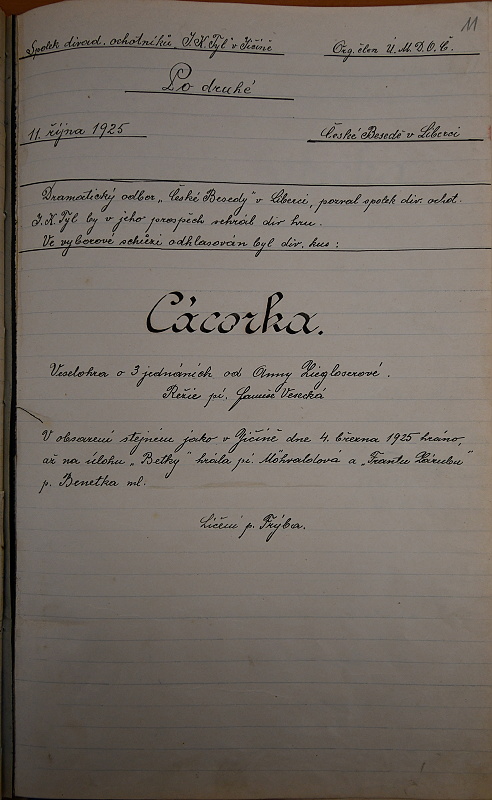 11
Spolek divad. ochotníků "J. K. Tyl" v Jičíně Org. člen Ú. M. D. O. Č.
Po druhé
11. října 1925 České Besedě v Liberci
Dramatický odbor "České Besedy" v Liberci, pozval spolek div. ochot.
J. K. Tyl by v jeho prospěch sehrál div. hru.
Ve výborové schůzi odhlasován byl div. kus:
Cácorka.
Veselohra o 3 jednáních od Anny Ziegloserové.
Režie pí. Vesecká
V obsazení stejném jako v Jičíně dne 4. března 1925 hráno,
až na úlohu "Betky" hrála pí. Möhvaldová a "Frantu Zárubu"
p. Benetka ml.
Líčení p. Frýba.